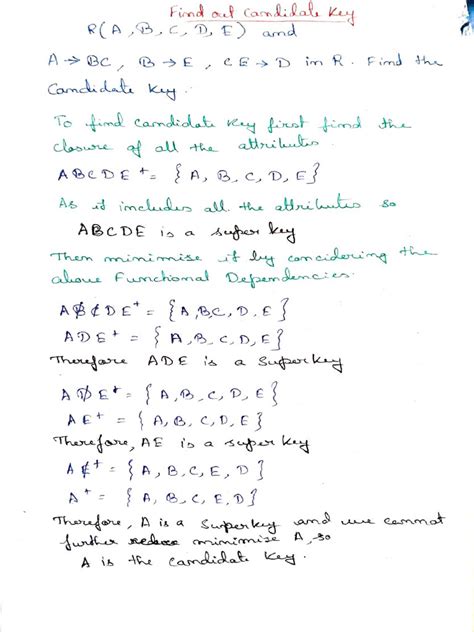 Find out Candidate Key
R(A, B, C, D, E) and
A → BC, B → E, CE → D in R. Find the
Candidate Key.
To find candidate key first find the
closure of all the attributes
ABCDE⁺ = {A, B, C, D, E}
As it includes all the attributes so
ABCDE is a super key
Then minimise it by concidering the
above Functional Dependencies.
ABCDE⁺ = {A, B, C, D, E}
ADE⁺ = {A, B, C, D, E}
Therefore ADE is a Superkey
ADE⁺ = {A, B, C, D, E}
AE⁺ = {A, B, C, D, E}
Therefore, AE is a super key
AE⁺ = {A, B, C, E, D}
A⁺ = {A, B, C, E, D}
Therefore, A is a Superkey and we cannot
further reduce minimise A, so
A is the candidate key.